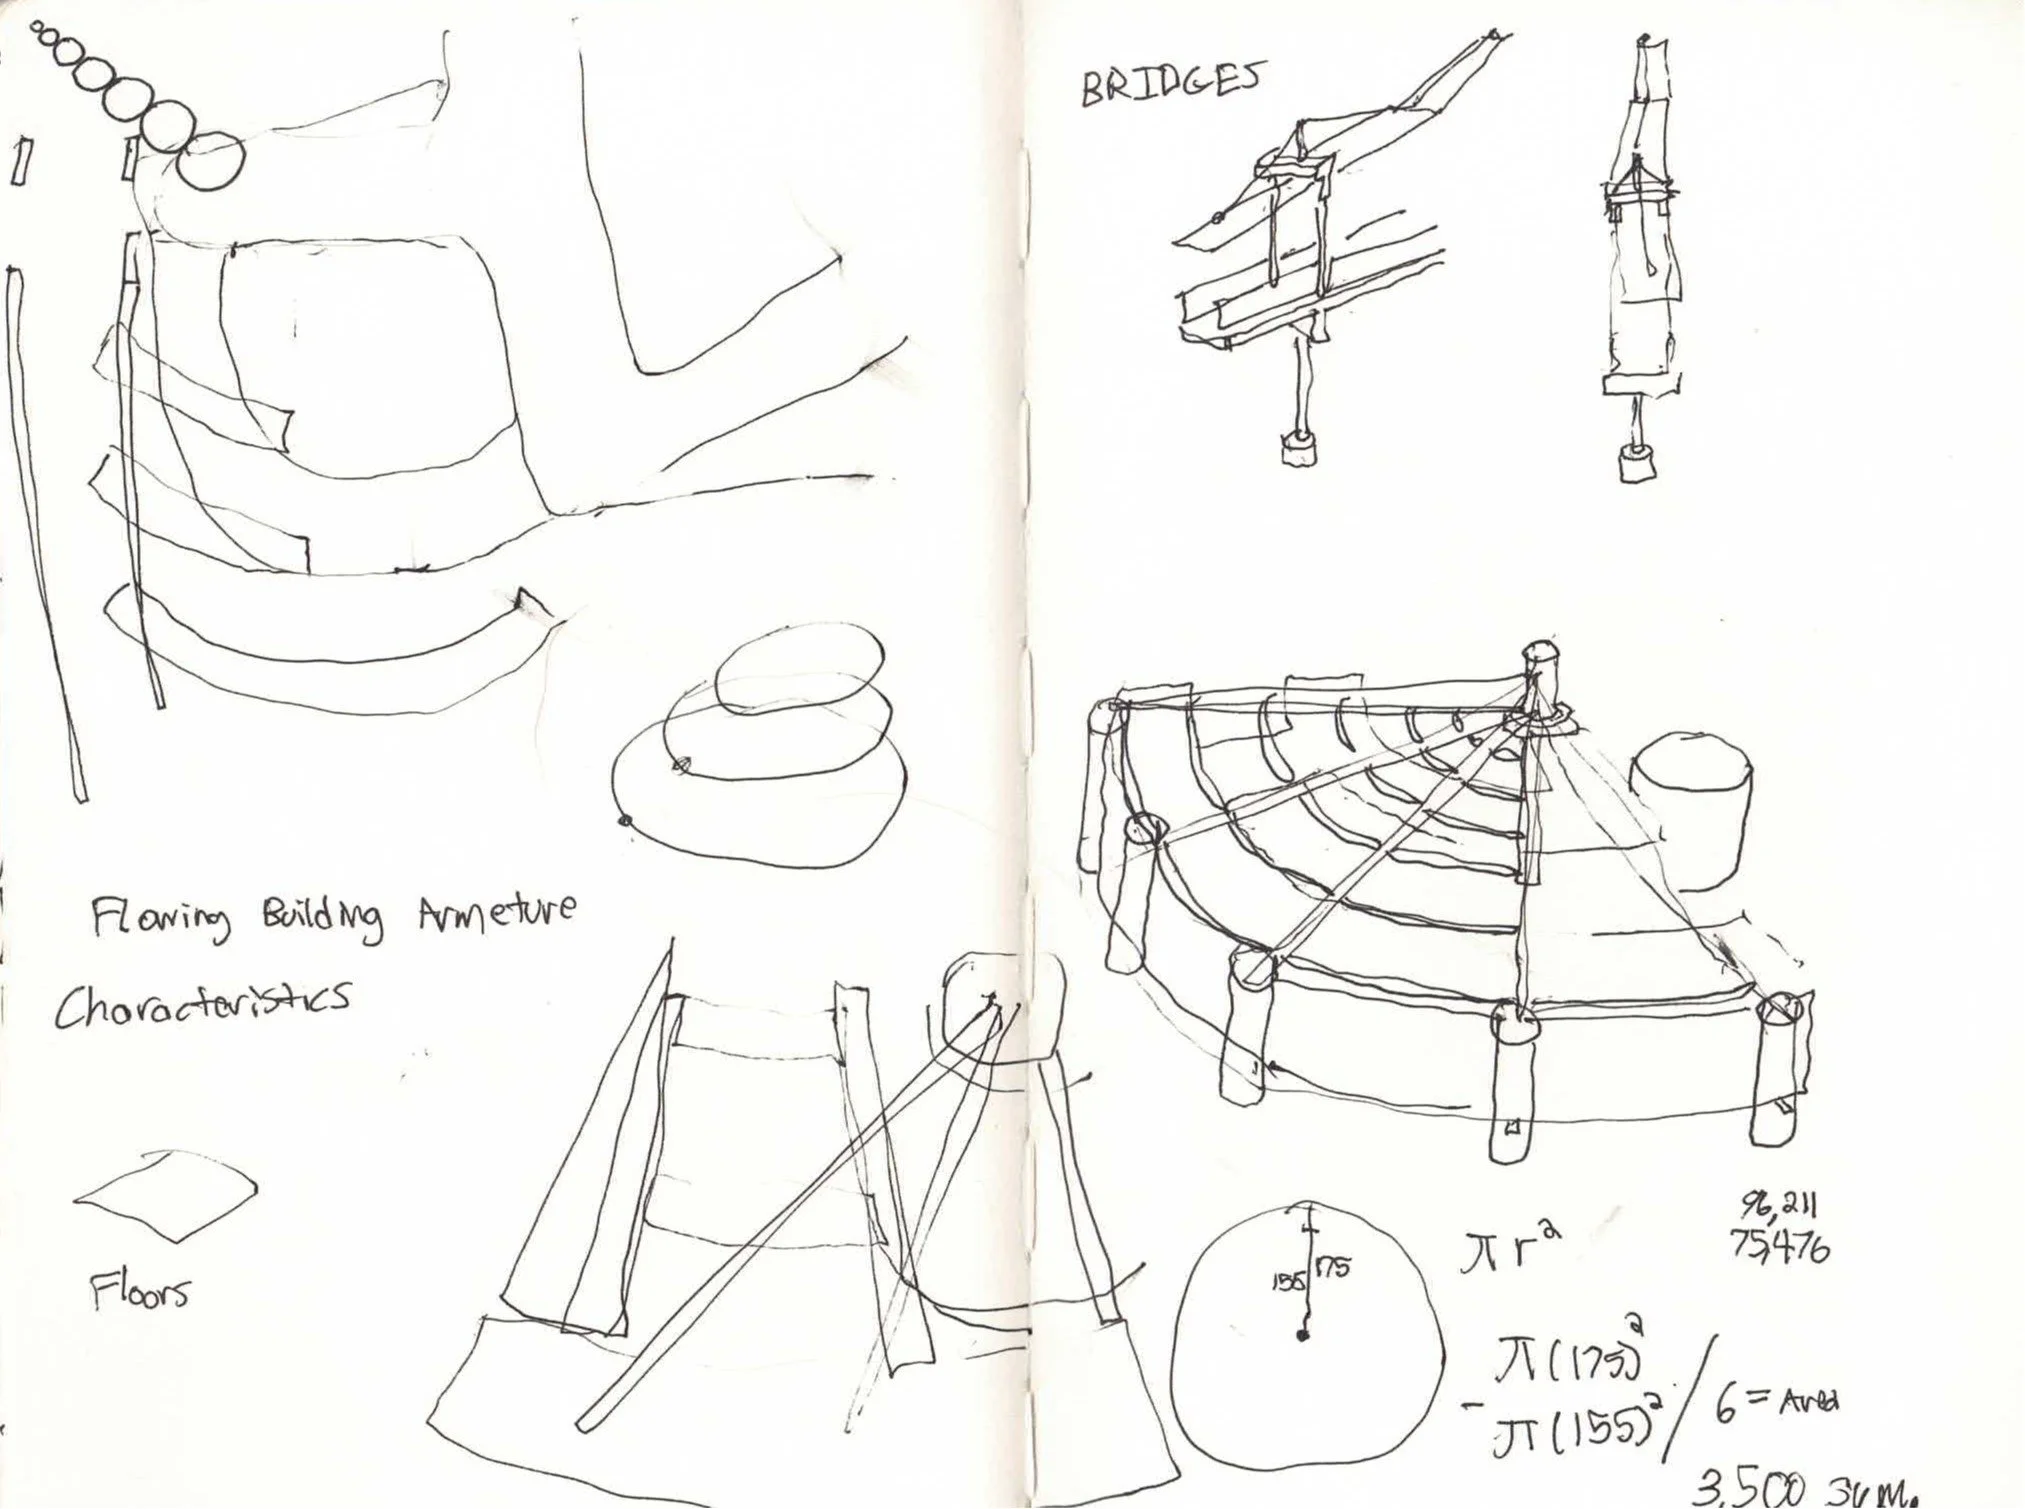 BRIDGES
Flowing Building Armeture
Characteristics
Floors
155 175
πr²
96,211
75,476
π(175)²
- π(155)² / 6 = Area
3,500